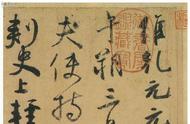 維乾元
午朔三
夫使持
刺史上輕